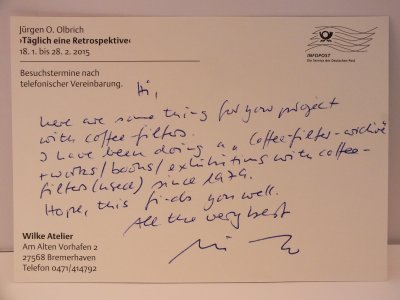 Jürgen O. Olbrich
›Täglich eine Retrospektive‹
18. 1. bis 28. 2. 2015
INFOPOST
Ein Service der Deutschen Post
Besuchstermine nach
telefonischer Vereinbarung.
Hi,
here are some thing for your project
with coffee filters.
I have been doing a „Coffee-filter-archive
+ works/books/exhibitions with coffee-
filters (used) since 1979.
Hope, this finds you well.
All the very best
Wilke Atelier
Am Alten Vorhafen 2
27568 Bremerhaven
Telefon 0471/414792